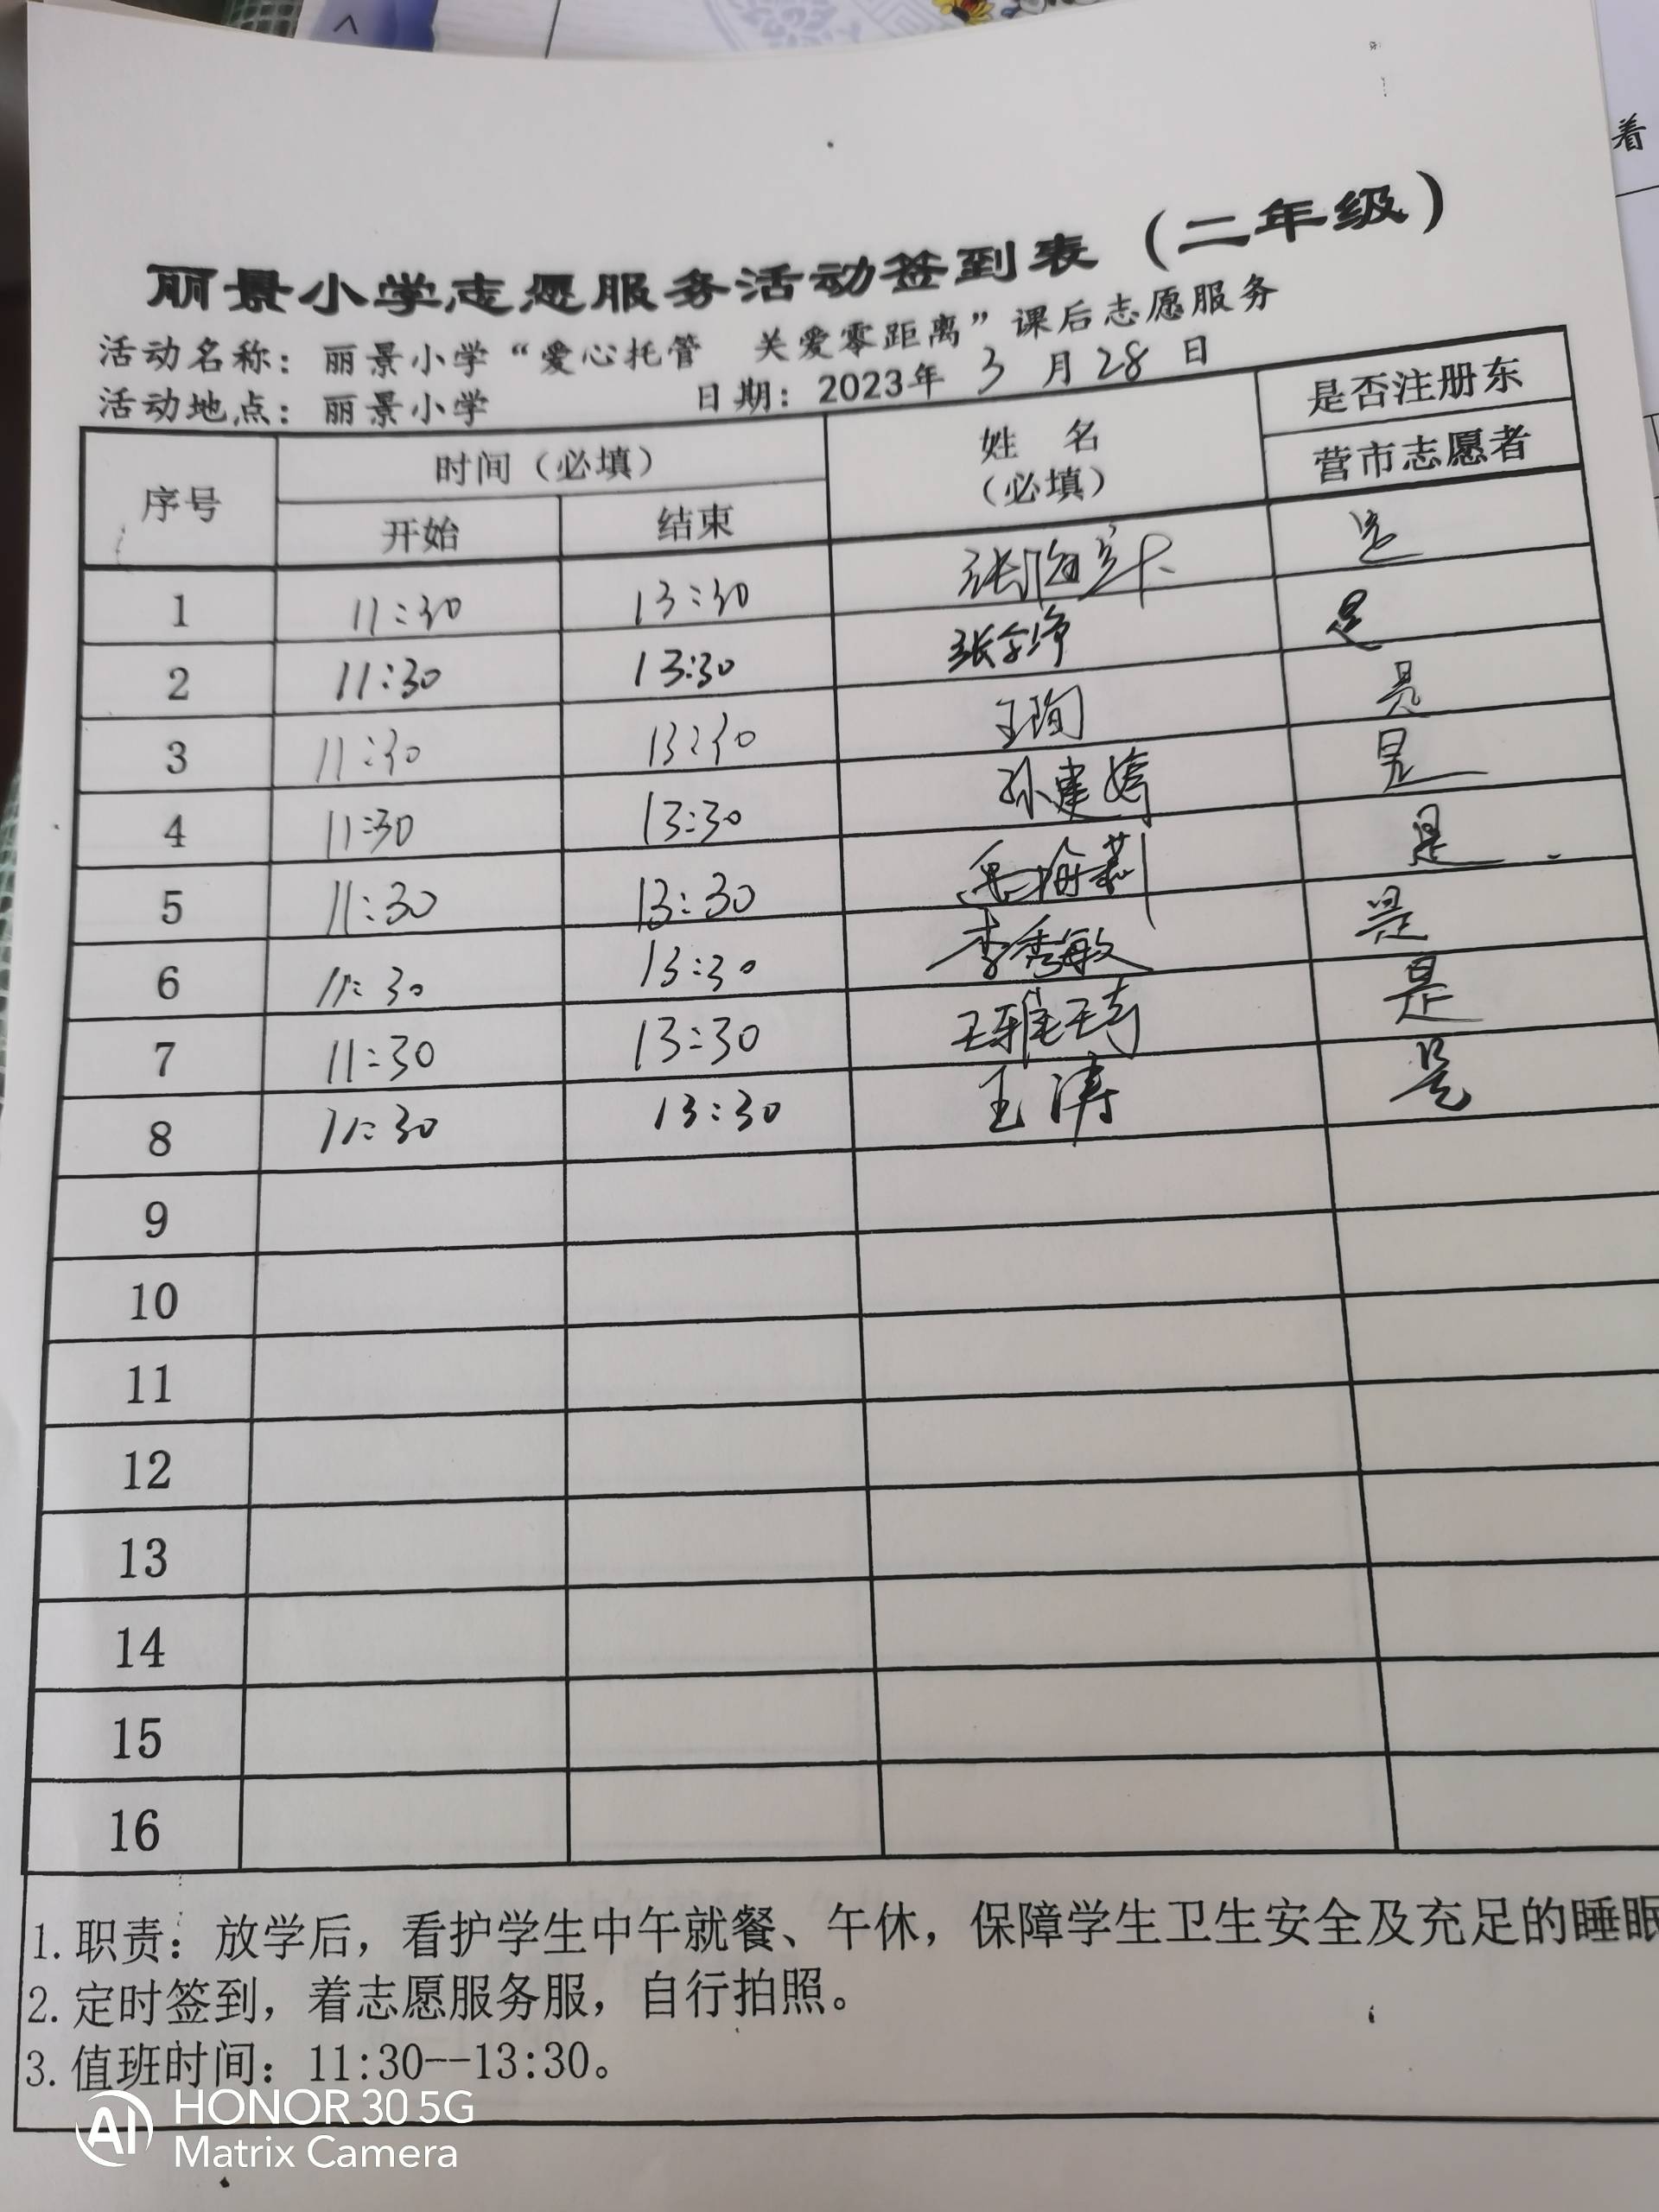 着
丽景小学志愿服务活动签到表（二年级）
活动名称：丽景小学“爱心托管 关爱零距离”课后志愿服务
活动地点：丽景小学 日期：2023年 3 月 28 日
序号 时间（必填） 姓 名 是否注册东
开始 结束 （必填） 营市志愿者
1 11:30 13:30 是
2 11:30 13:30 是
3 11:30 13:30 王珣 是
4 11:30 13:30 孙建嫦 是
5 11:30 13:30 是
6 11:30 13:30 李秀敏 是
7 11:30 13:30 王雅琦 是
8 11:30 13:30 王涛 是
9
10
11
12
13
14
15
16
1. 职责：放学后，看护学生中午就餐、午休，保障学生卫生安全及充足的睡眠
2. 定时签到，着志愿服务服，自行拍照。
3. 值班时间：11:30--13:30。
AI HONOR 30 5G
Matrix Camera